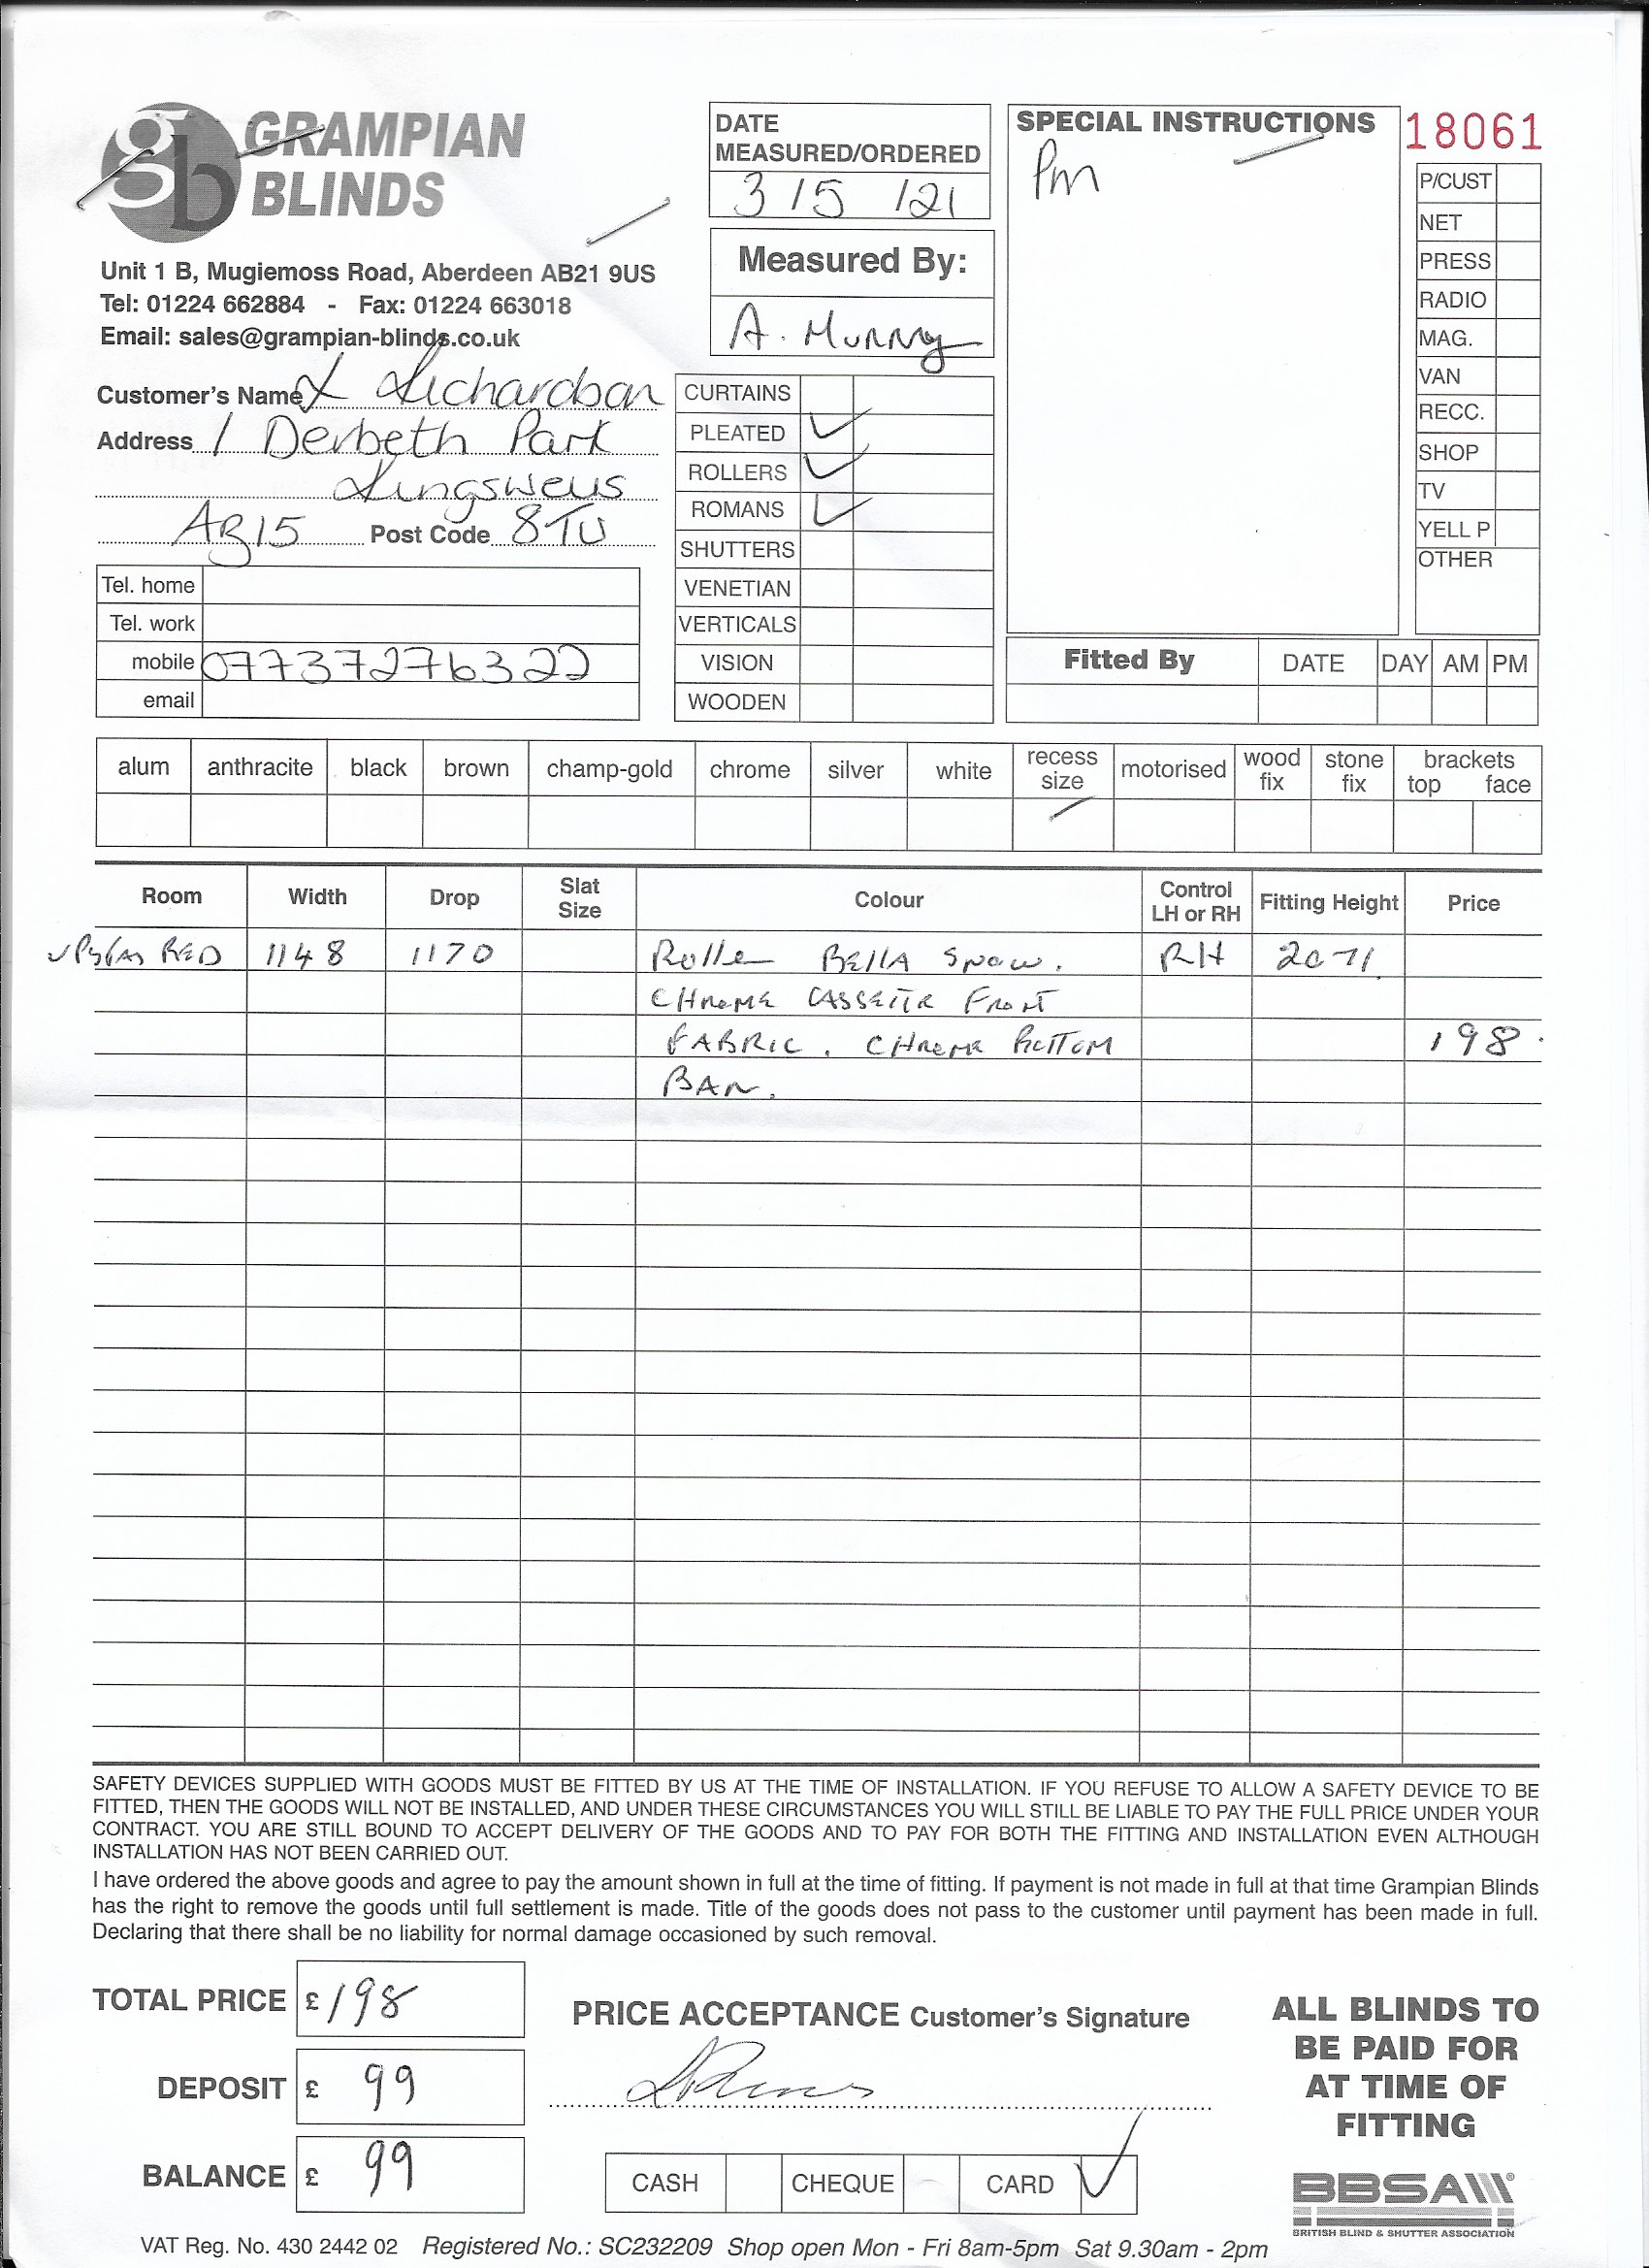 gb GRAMPIAN
BLINDS
Unit 1 B, Mugiemoss Road, Aberdeen AB21 9US
Tel: 01224 662884 - Fax: 01224 663018
Email: sales@grampian-blinds.co.uk
Customer's Name L Richardson
Address 1 Derbeth Park
Kingswells
AB15 Post Code 8TU
Tel. home
Tel. work
mobile 07737276322
email
DATE
MEASURED/ORDERED
3/5/21
Measured By:
A. Murray
CURTAINS
PLEATED ✓
ROLLERS ✓
ROMANS ✓
SHUTTERS
VENETIAN
VERTICALS
VISION
WOODEN
SPECIAL INSTRUCTIONS
Pm
18061
P/CUST
NET
PRESS
RADIO
MAG.
VAN
RECC.
SHOP
TV
YELL P
OTHER
Fitted By DATE DAY AM PM
alum anthracite black brown champ-gold chrome silver white recess size motorised wood fix stone fix brackets top face
Room Width Drop Slat Size Colour Control LH or RH Fitting Height Price
BED 1148 1170 Roller BELLA Snow. RH 2071
CHROME CASSETTE FRONT
FABRIC. CHROME BOTTOM 198.
BAR.
SAFETY DEVICES SUPPLIED WITH GOODS MUST BE FITTED BY US AT THE TIME OF INSTALLATION. IF YOU REFUSE TO ALLOW A SAFETY DEVICE TO BE
FITTED, THEN THE GOODS WILL NOT BE INSTALLED, AND UNDER THESE CIRCUMSTANCES YOU WILL STILL BE LIABLE TO PAY THE FULL PRICE UNDER YOUR
CONTRACT. YOU ARE STILL BOUND TO ACCEPT DELIVERY OF THE GOODS AND TO PAY FOR BOTH THE FITTING AND INSTALLATION EVEN ALTHOUGH
INSTALLATION HAS NOT BEEN CARRIED OUT.
I have ordered the above goods and agree to pay the amount shown in full at the time of fitting. If payment is not made in full at that time Grampian Blinds
has the right to remove the goods until full settlement is made. Title of the goods does not pass to the customer until payment has been made in full.
Declaring that there shall be no liability for normal damage occasioned by such removal.
TOTAL PRICE £198
DEPOSIT £ 99
BALANCE £ 99
PRICE ACCEPTANCE Customer's Signature
CASH CHEQUE CARD ✓
ALL BLINDS TO
BE PAID FOR
AT TIME OF
FITTING
BBSA®
BRITISH BLIND & SHUTTER ASSOCIATION
VAT Reg. No. 430 2442 02 Registered No.: SC232209 Shop open Mon - Fri 8am-5pm Sat 9.30am - 2pm